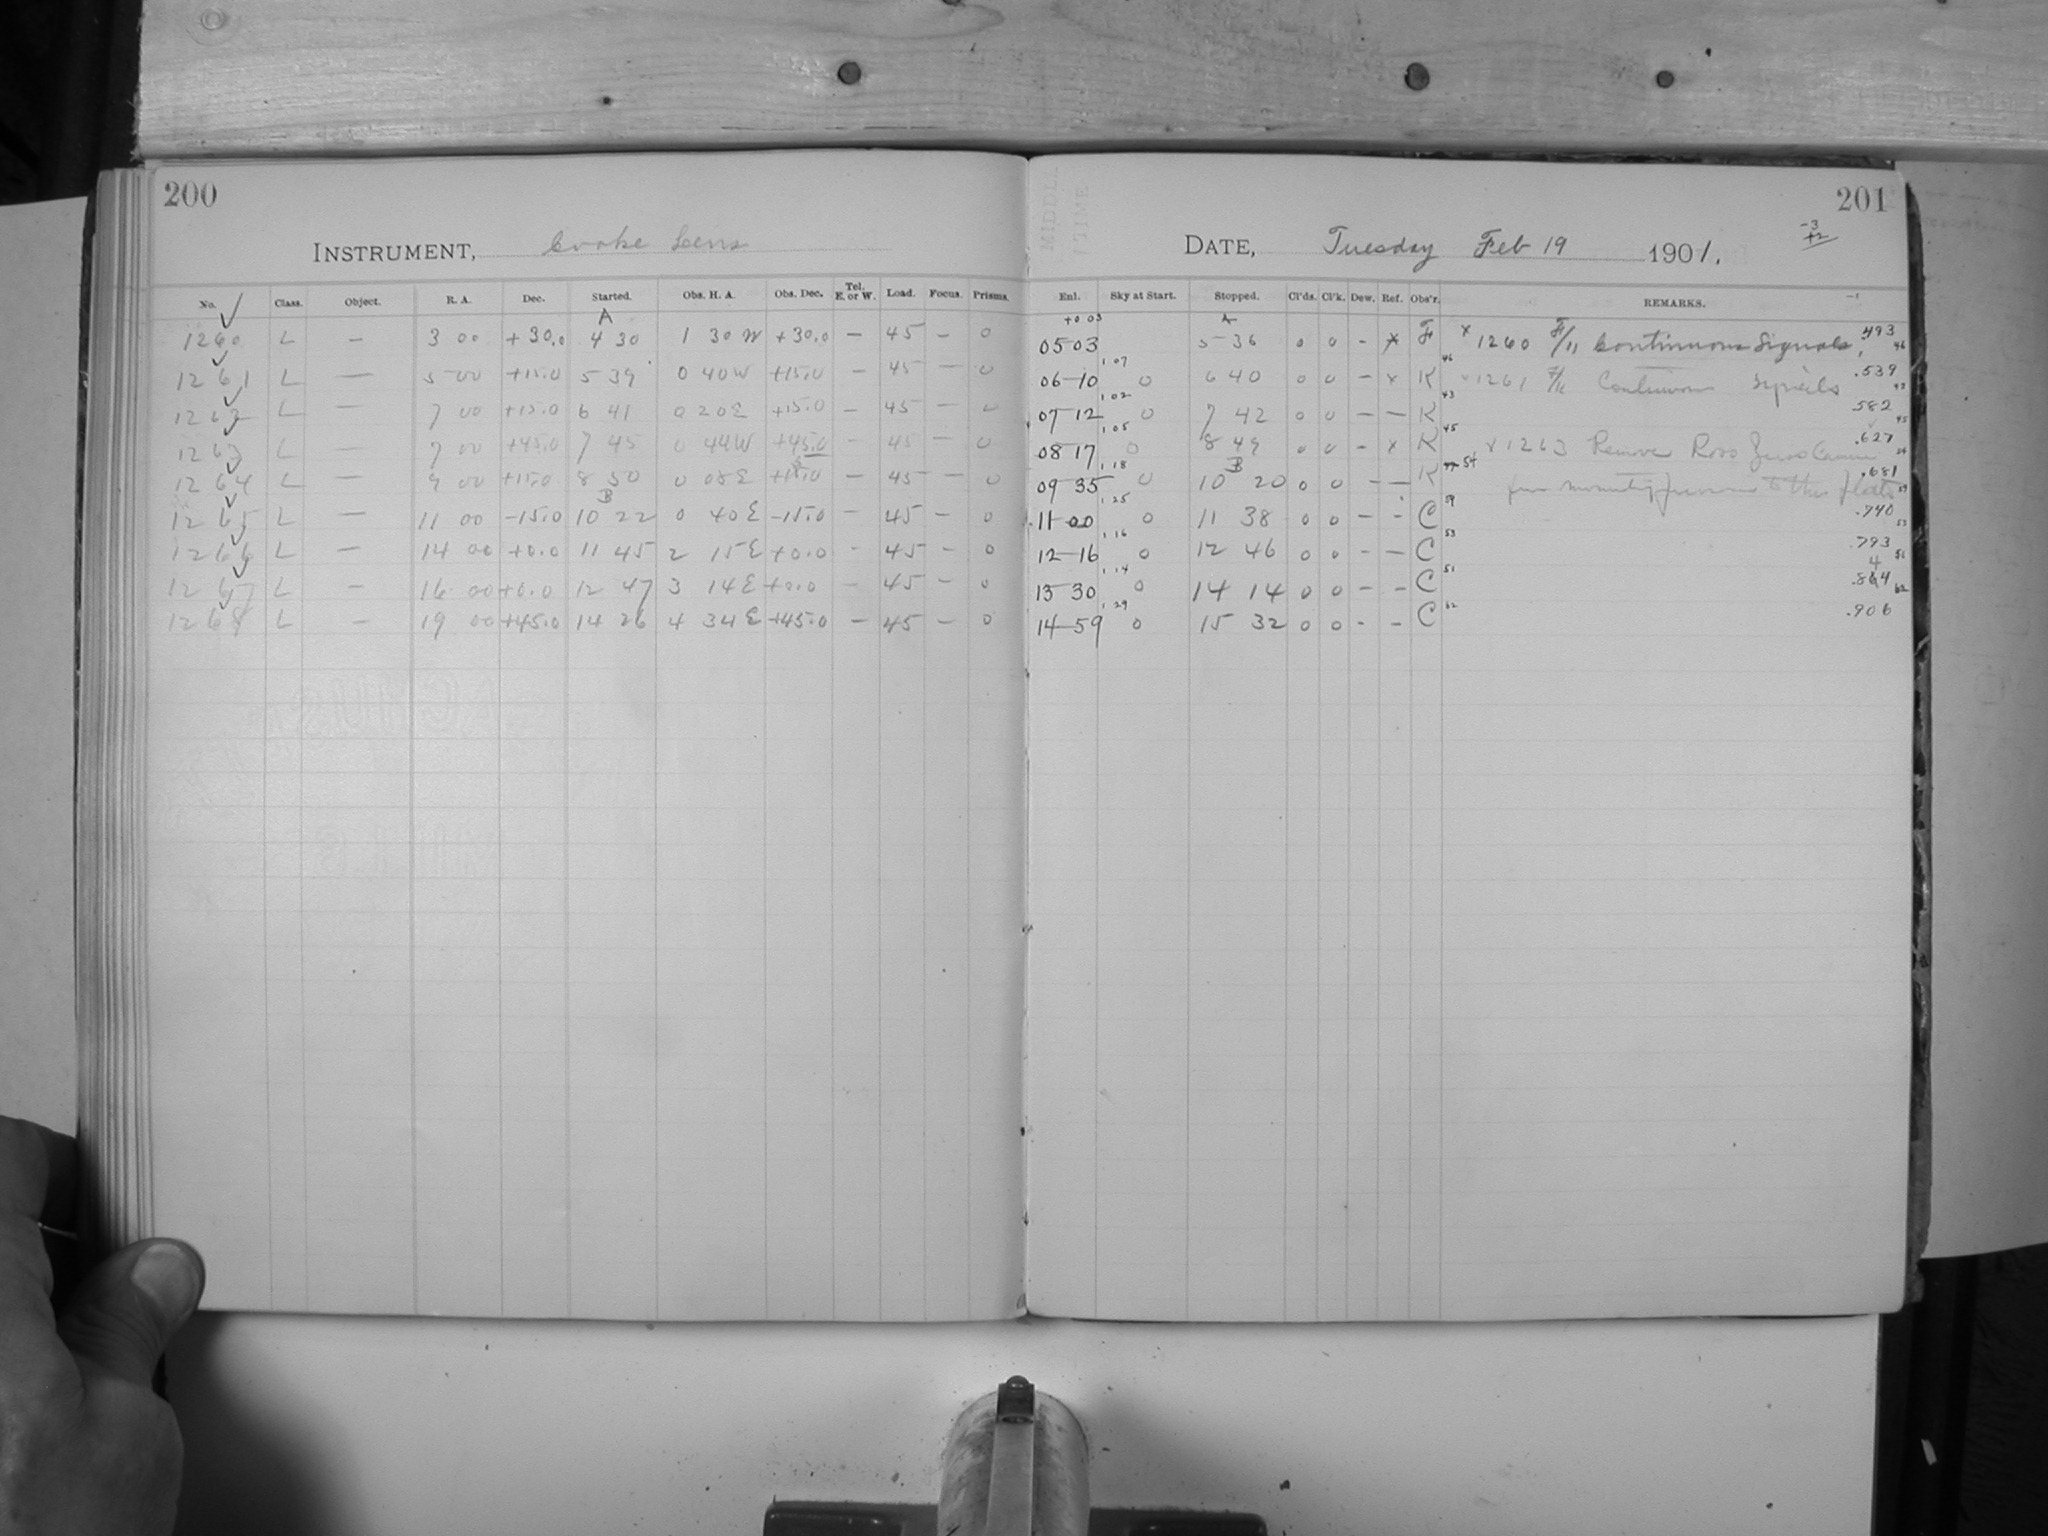 200
INSTRUMENT, Cooke Lens
No. Class. Object. R. A. Dec. Started. Obs. H. A. Obs. Dec. Tel. E. or W. Load. Focus. Prisms.
A
1260 L — 3 00 +30.0 4 30 1 30 W +30.0 — 45 — 0
1261 L — 5 00 +15.0 5 39 0 40 W +15.0 — 45 — 0
1262 L — 7 00 +15.0 6 41 0 20 E +15.0 — 45 — 0
1263 L — 7 00 +45.0 7 45 0 44 W +45.0 — 45 — 0
1264 L — 9 00 +15.0 8 50 0 08 E +15.0 — 45 — 0
B
1265 L — 11 00 -15.0 10 22 0 40 E -15.0 — 45 — 0
1266 L — 14 00 +0.0 11 45 2 15 E +0.0 - 45 — 0
1267 L — 16 00 +0.0 12 47 3 14 E +0.0 — 45 — 0
1268 L — 19 00 +45.0 14 26 4 34 E +45.0 — 45 — 0
201
DATE, Tuesday Feb 19 1901.
-3
+2
Enl. Sky at Start. Stopped. Cl'ds. Cl'k. Dew. Ref. Obs'r. REMARKS.
+0 03 A
05 03 5 36 0 0 - x F x 1260 F/11 Continuous Signals. .493
1.07 46 46
06-10 0 6 40 0 0 — x K x 1261 F/11 Continuous Signals .539
1.02 43 43
07 12 0 7 42 0 0 — — K .582
1.05 45 45
08 17 0 8 49 0 0 — x K x 1263 Remove Rod from Camera .627
1.18 B 54 54
09 35 0 10 20 0 0 — — K for to the .681
1.25 59 59
11-00 0 11 38 0 0 - - C .740
1.16 53 53
12-16 0 12 46 0 0 - — C .793
1.14 51 51
13 30 0 14 14 0 0 - - C .844
1.29 62 62
14-59 0 15 32 0 0 - - C .906